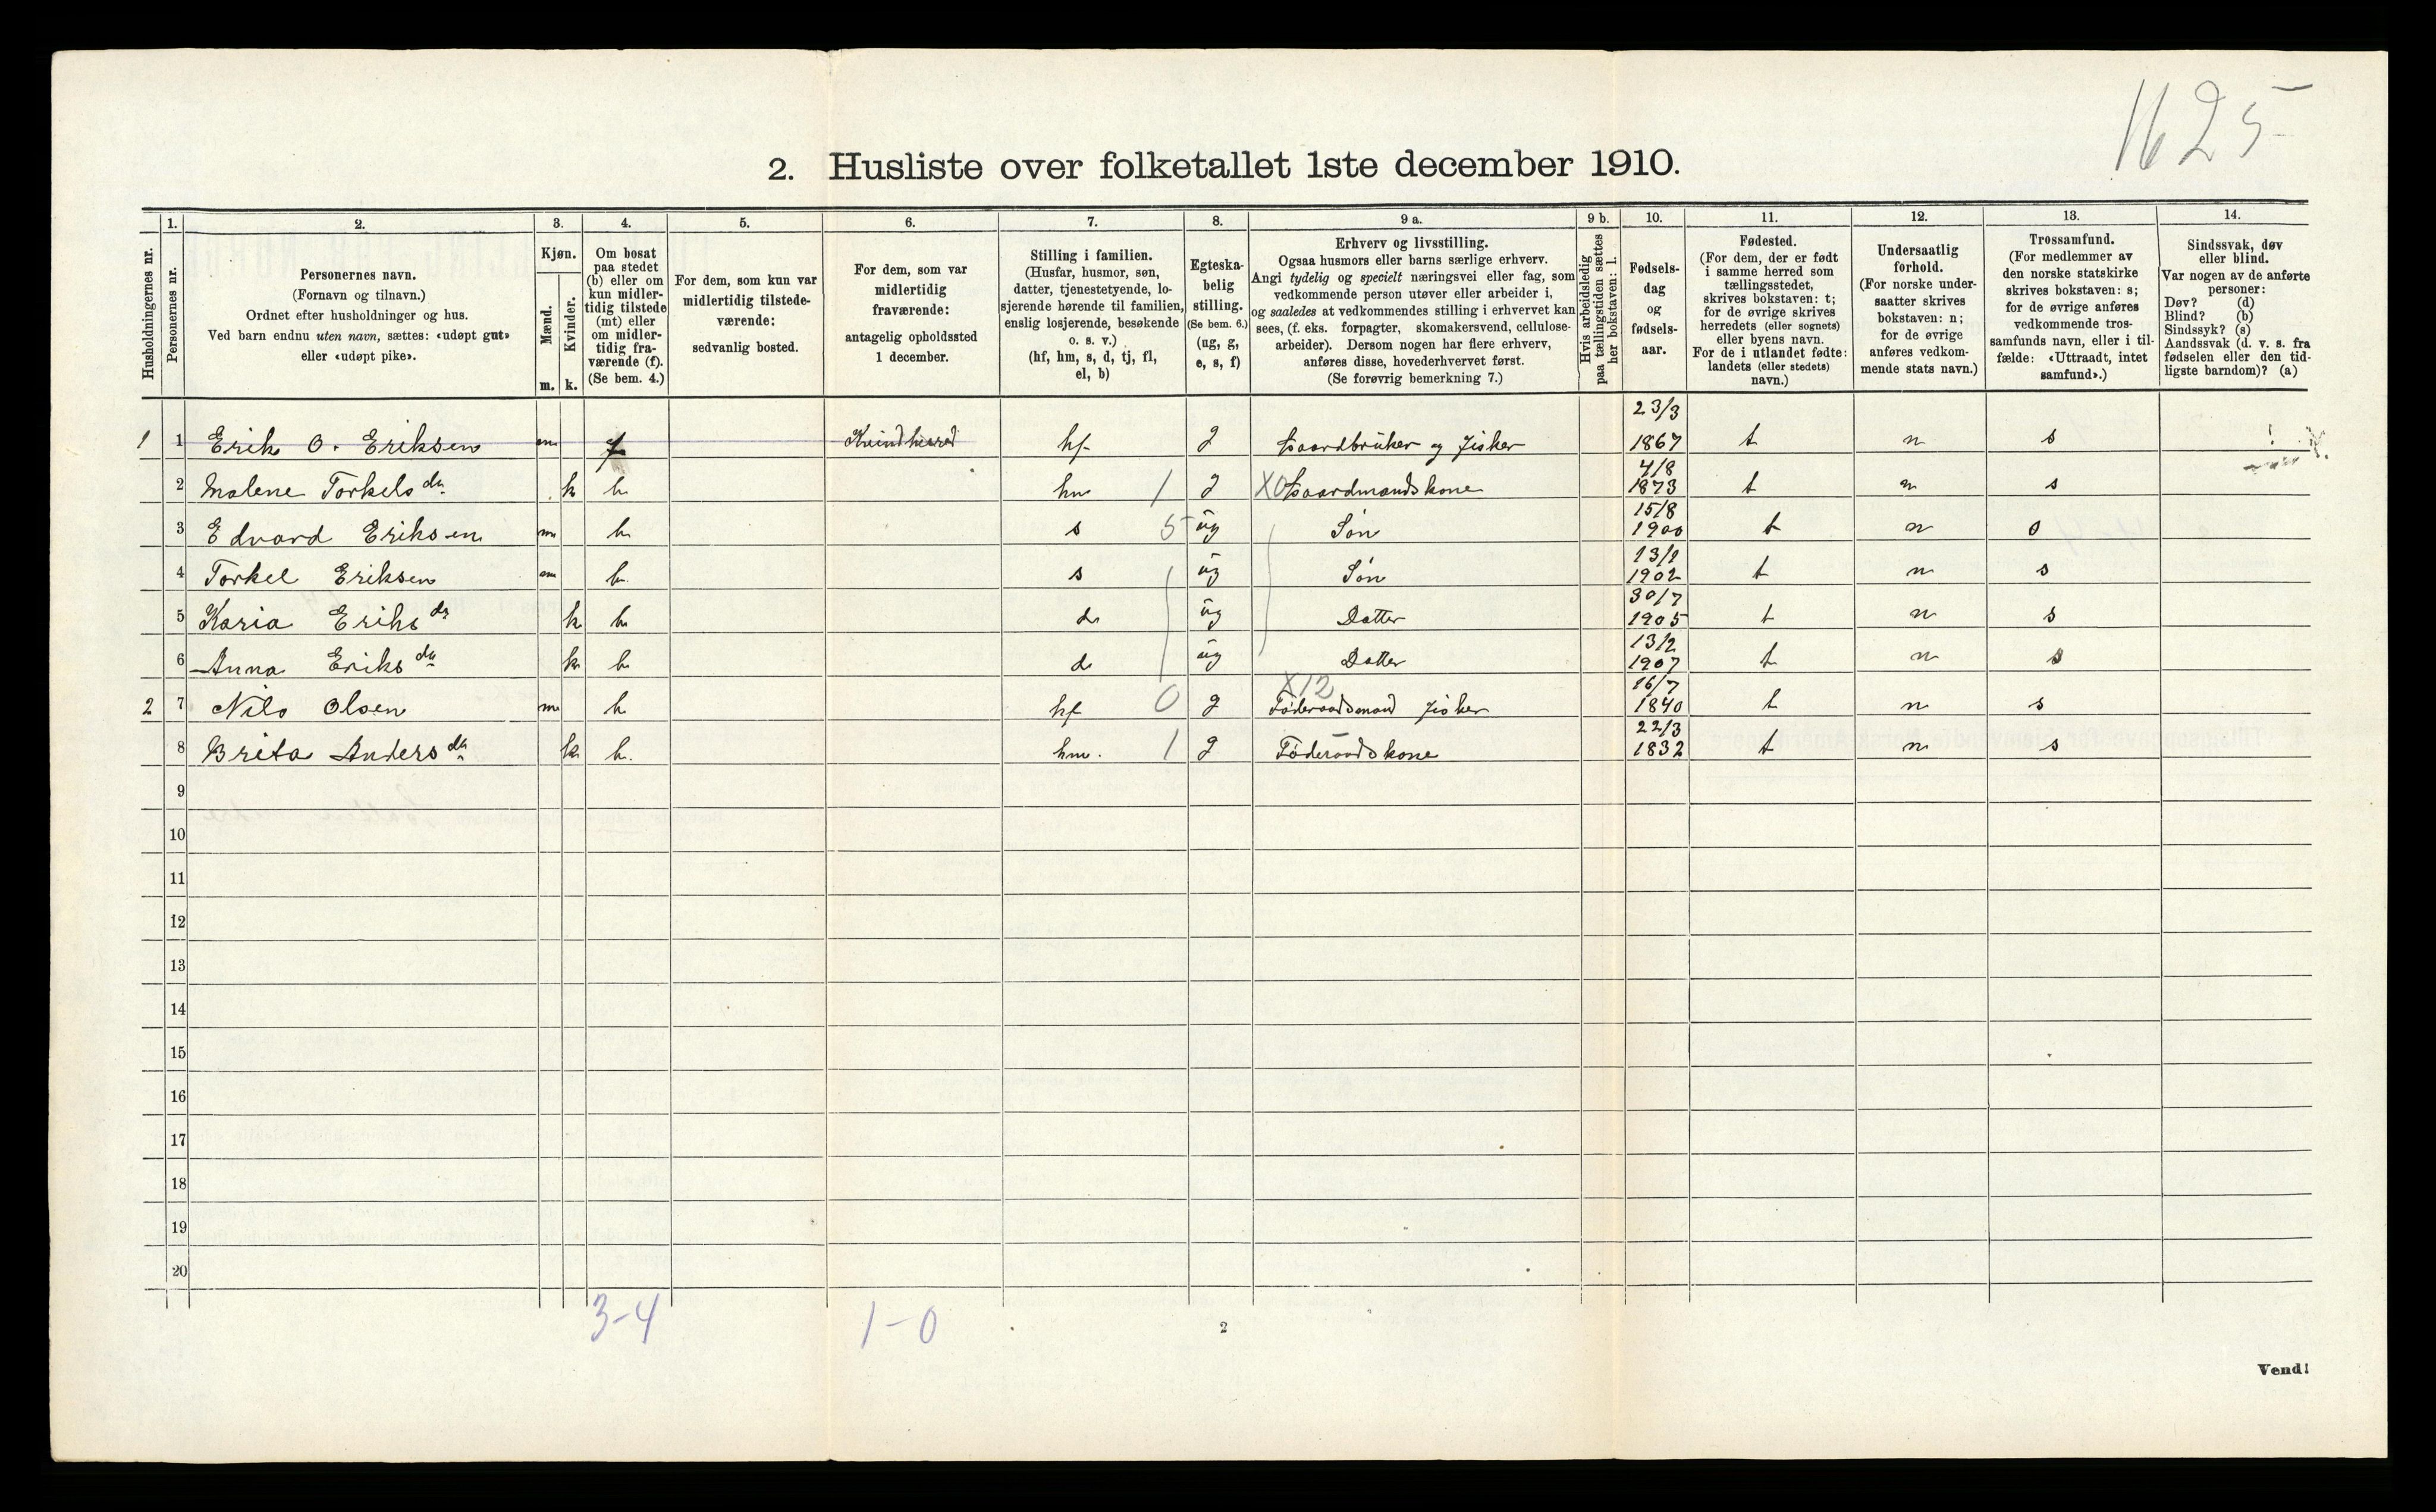 1625
2. Husliste over folketallet 1ste december 1910.
Husholdningernes nr.
1. Personernes nr.
2. Personernes navn.
(Fornavn og tilnavn.)
Ordnet efter husholdninger og hus.
Ved barn endnu uten navn, sættes: «udøpt gut»
eller «udøpt pike».
3. Kjøn.
Mænd. m.
Kvinder. k.
4. Om bosat
paa stedet
(b) eller om
kun midler-
tidig tilstede
(mt) eller
om midler-
tidig fra-
værende (f).
(Se bem. 4.)
5. For dem, som kun var
midlertidig tilstede-
værende:
sedvanlig bosted.
6. For dem, som var
midlertidig
fraværende:
antagelig opholdssted
1 december.
7. Stilling i familien.
(Husfar, husmor, søn,
datter, tjenestetyende, lo-
sjerende hørende til familien,
enslig losjerende, besøkende
o. s. v.)
(hf, hm, s, d, tj, fl,
el, b)
8. Egteska-
belig
stilling.
(Se bem. 6.)
(ug, g,
e, s, f)
9 a. Erhverv og livsstilling.
Ogsaa husmors eller barns særlige erhverv.
Angi tydelig og specielt næringsvei eller fag, som
vedkommende person utøver eller arbeider i,
og saaledes at vedkommendes stilling i erhvervet kan
sees, (f. eks. forpagter, skomakersvend, cellulose-
arbeider). Dersom nogen har flere erhverv,
anføres disse, hovederhvervet først.
(Se forøvrig bemerkning 7.)
9 b. Hvis arbeidsledig
paa tællingstiden sættes
her bokstaven: l.
10. Fødsels-
dag
og
fødsels-
aar.
11. Fødested.
(For dem, der er født
i samme herred som
tællingsstedet,
skrives bokstaven: t;
for de øvrige skrives
herredets (eller sognets)
eller byens navn.
For de i utlandet fødte:
landets (eller stedets)
navn.)
12. Undersaatlig
forhold.
(For norske under-
saatter skrives
bokstaven: n;
for de øvrige
anføres vedkom-
mende stats navn.)
13. Trossamfund.
(For medlemmer av
den norske statskirke
skrives bokstaven: s;
for de øvrige anføres
vedkommende tros-
samfunds navn, eller i til-
fælde: «Uttraadt, intet
samfund».)
14. Sindssvak, døv
eller blind.
Var nogen av de anførte
personer:
Døv? (d)
Blind? (b)
Sindssyk? (s)
Aandssvak (d. v. s. fra
fødselen eller den tid-
ligste barndom)? (a)
1 1 Erik O. Eriksen m f Kvindherred hf g Gaardbruker og fisker 23/3 1867 t n s
2 Malene Torkelsdr k b hm 1 g X0 Gaardmandskone 4/8 1873 t n s
3 Edvard Eriksen m b s 5 ug Søn 15/8 1900 t n s
4 Torkel Eriksen m b. s ug Søn 13/1 1902 t n s
5 Karia Eriksdr k b d ug Datter 30/7 1905 t n s
6 Anna Eriksdr k b d ug Datter 13/2 1907 t n s
2 7 Nils Olsen m b hf 0 g X12 Føderaadsmand fisker 16/7 1840 t n s
8 Brita Andersdr k b. hm. 1 g Føderaadskone 22/3 1832 t n s
9
10
11
12
13
14
15
16
17
18
19
20
3-4 1-0
2
Vend!